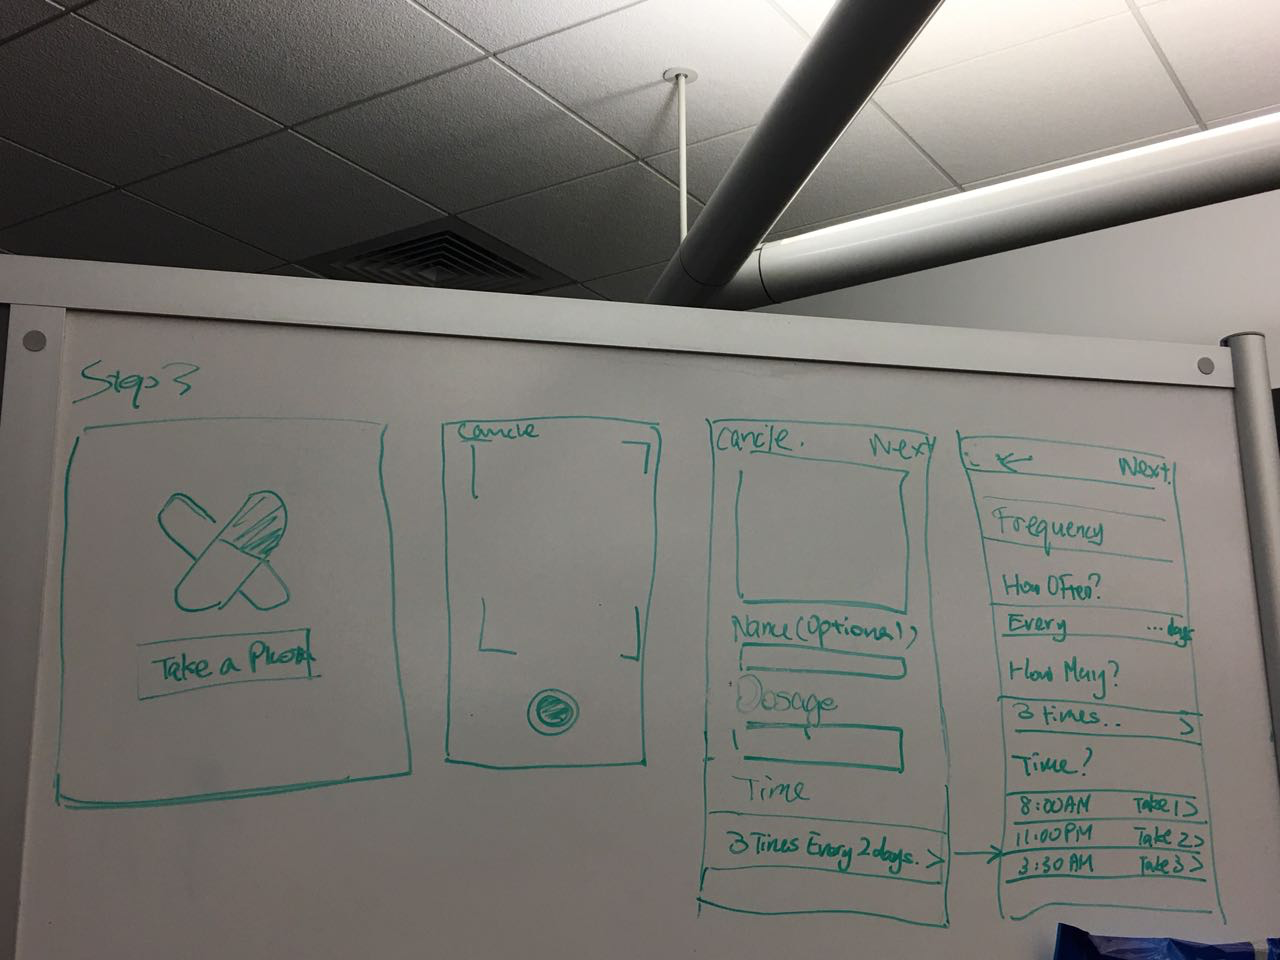 Step 3
Take a Photo
Cancle
Cancle. Next
Name (Optional)
Dosage
Time
3 Times Every 2 days. >
← Next.
Frequency
How Often?
Every ... days
How Many?
3 times.. >
Time?
8:00AM Take 1 >
11:00PM Take 2 >
3:30AM Take 3 >